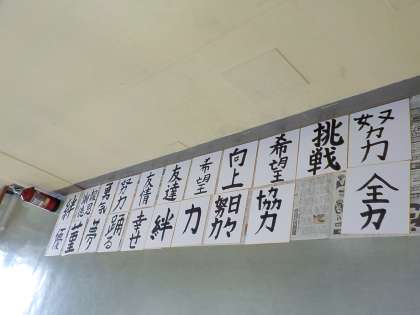 努力
挑戦
希望
向上
希望
友達
友情
努力
勇気
絆
全力
協力
日々
努力
力
絆
幸せ
踊る
夢
優